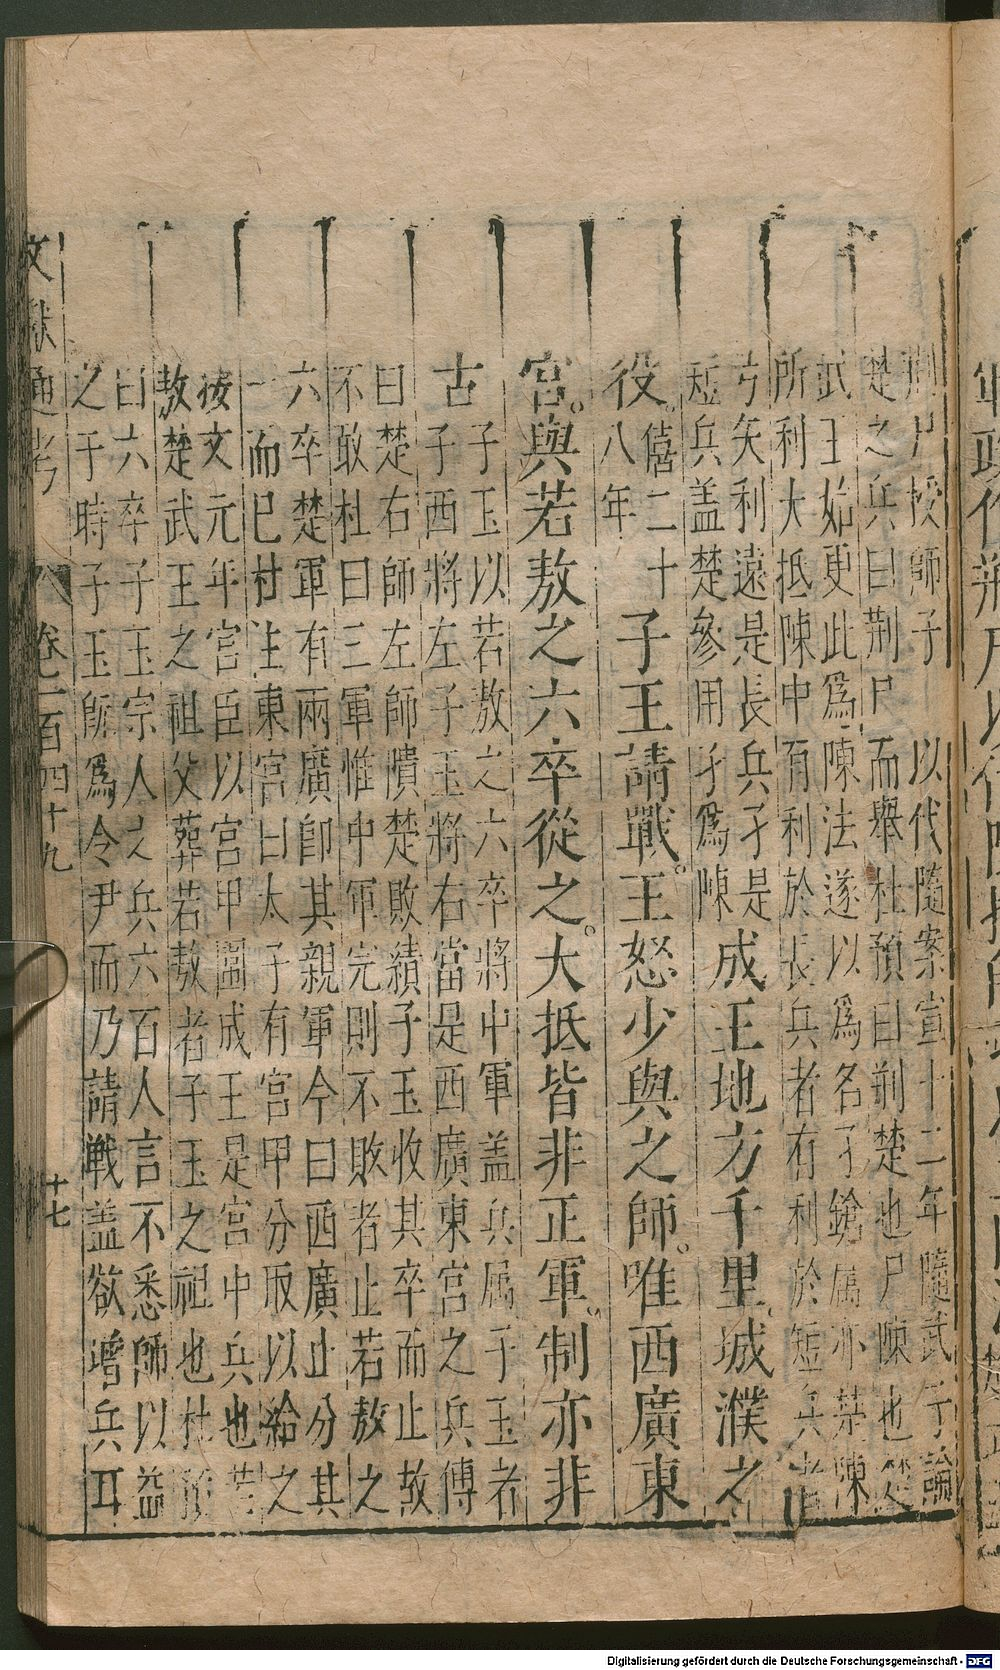 荆尸授師孑 以代隨案宣十二年隨武子論
楚之兵曰荆尸而舉杜預曰荆楚也尸陳也楚
武王始更此爲陳法遂以爲名孑鎗属亦楚陳
所利大抵陳中有利於長兵者有利於短兵者
弓矢利遠是長兵孑是
短兵盖楚參用孑爲陳
成王地方千里城濮之
役。僖二十八年子王請戰。王怒少與之師。唯西廣東
宮。與若敖之六卒從之。大抵皆非正軍。制亦非
古
子玉以若敖之六卒將中軍盖兵属子玉者
子西將左子玉將右當是西廣東宮之兵傳
曰楚右師左師隤楚敗績子玉收其卒而止故
不敢杜曰三軍惟中軍完則不敗者止若敖之
六卒楚軍有兩廣卽其親軍今曰西廣止分其
一而巳杜註東宮曰太子有宮甲分取以給之
按文元年宮臣以宮甲圍成王是宮中兵也若
敖楚武王之祖父葬若敖者子玉之祖也杜註
曰六卒子玉宗人之兵六百人言不悉師以益
之于時子玉旣爲令尹而乃請戰盖欲增兵耳
文獻通考 卷一百四十九 十七
Digitalisierung gefördert durch die Deutsche Forschungsgemeinschaft - DFG